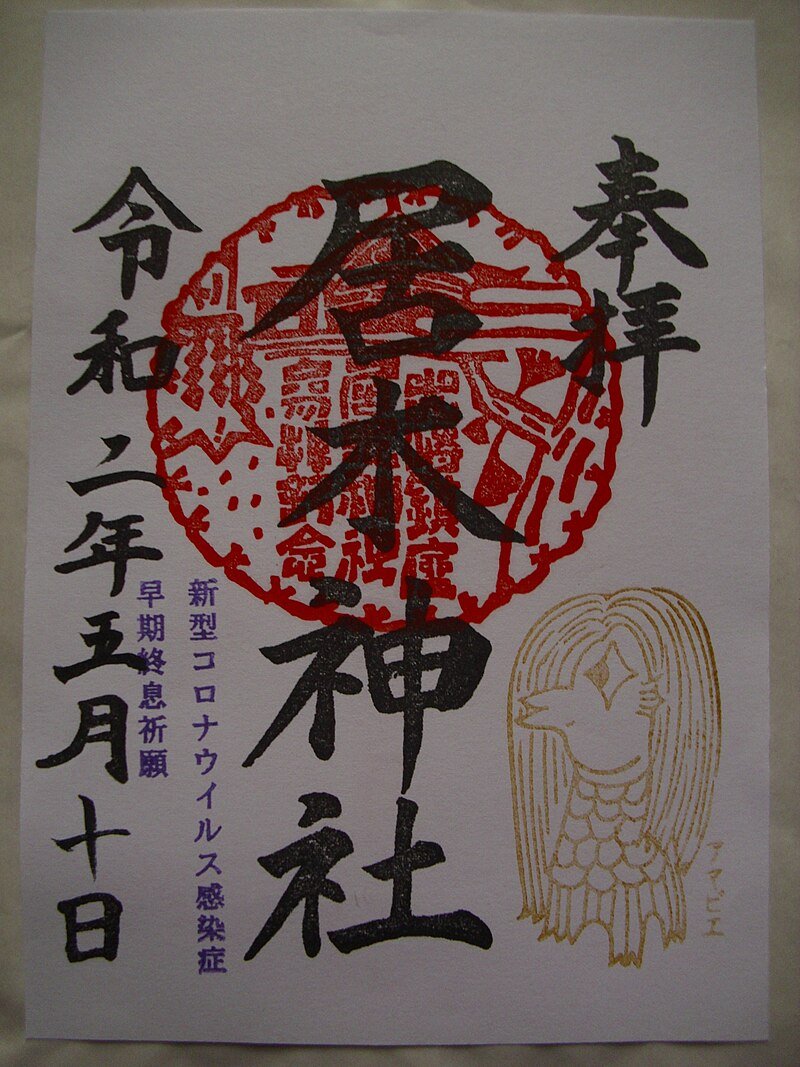 奉拝
アマビエ
居木神社
鎮座
新型コロナウイルス感染症
早期終息祈願
令和二年五月十日